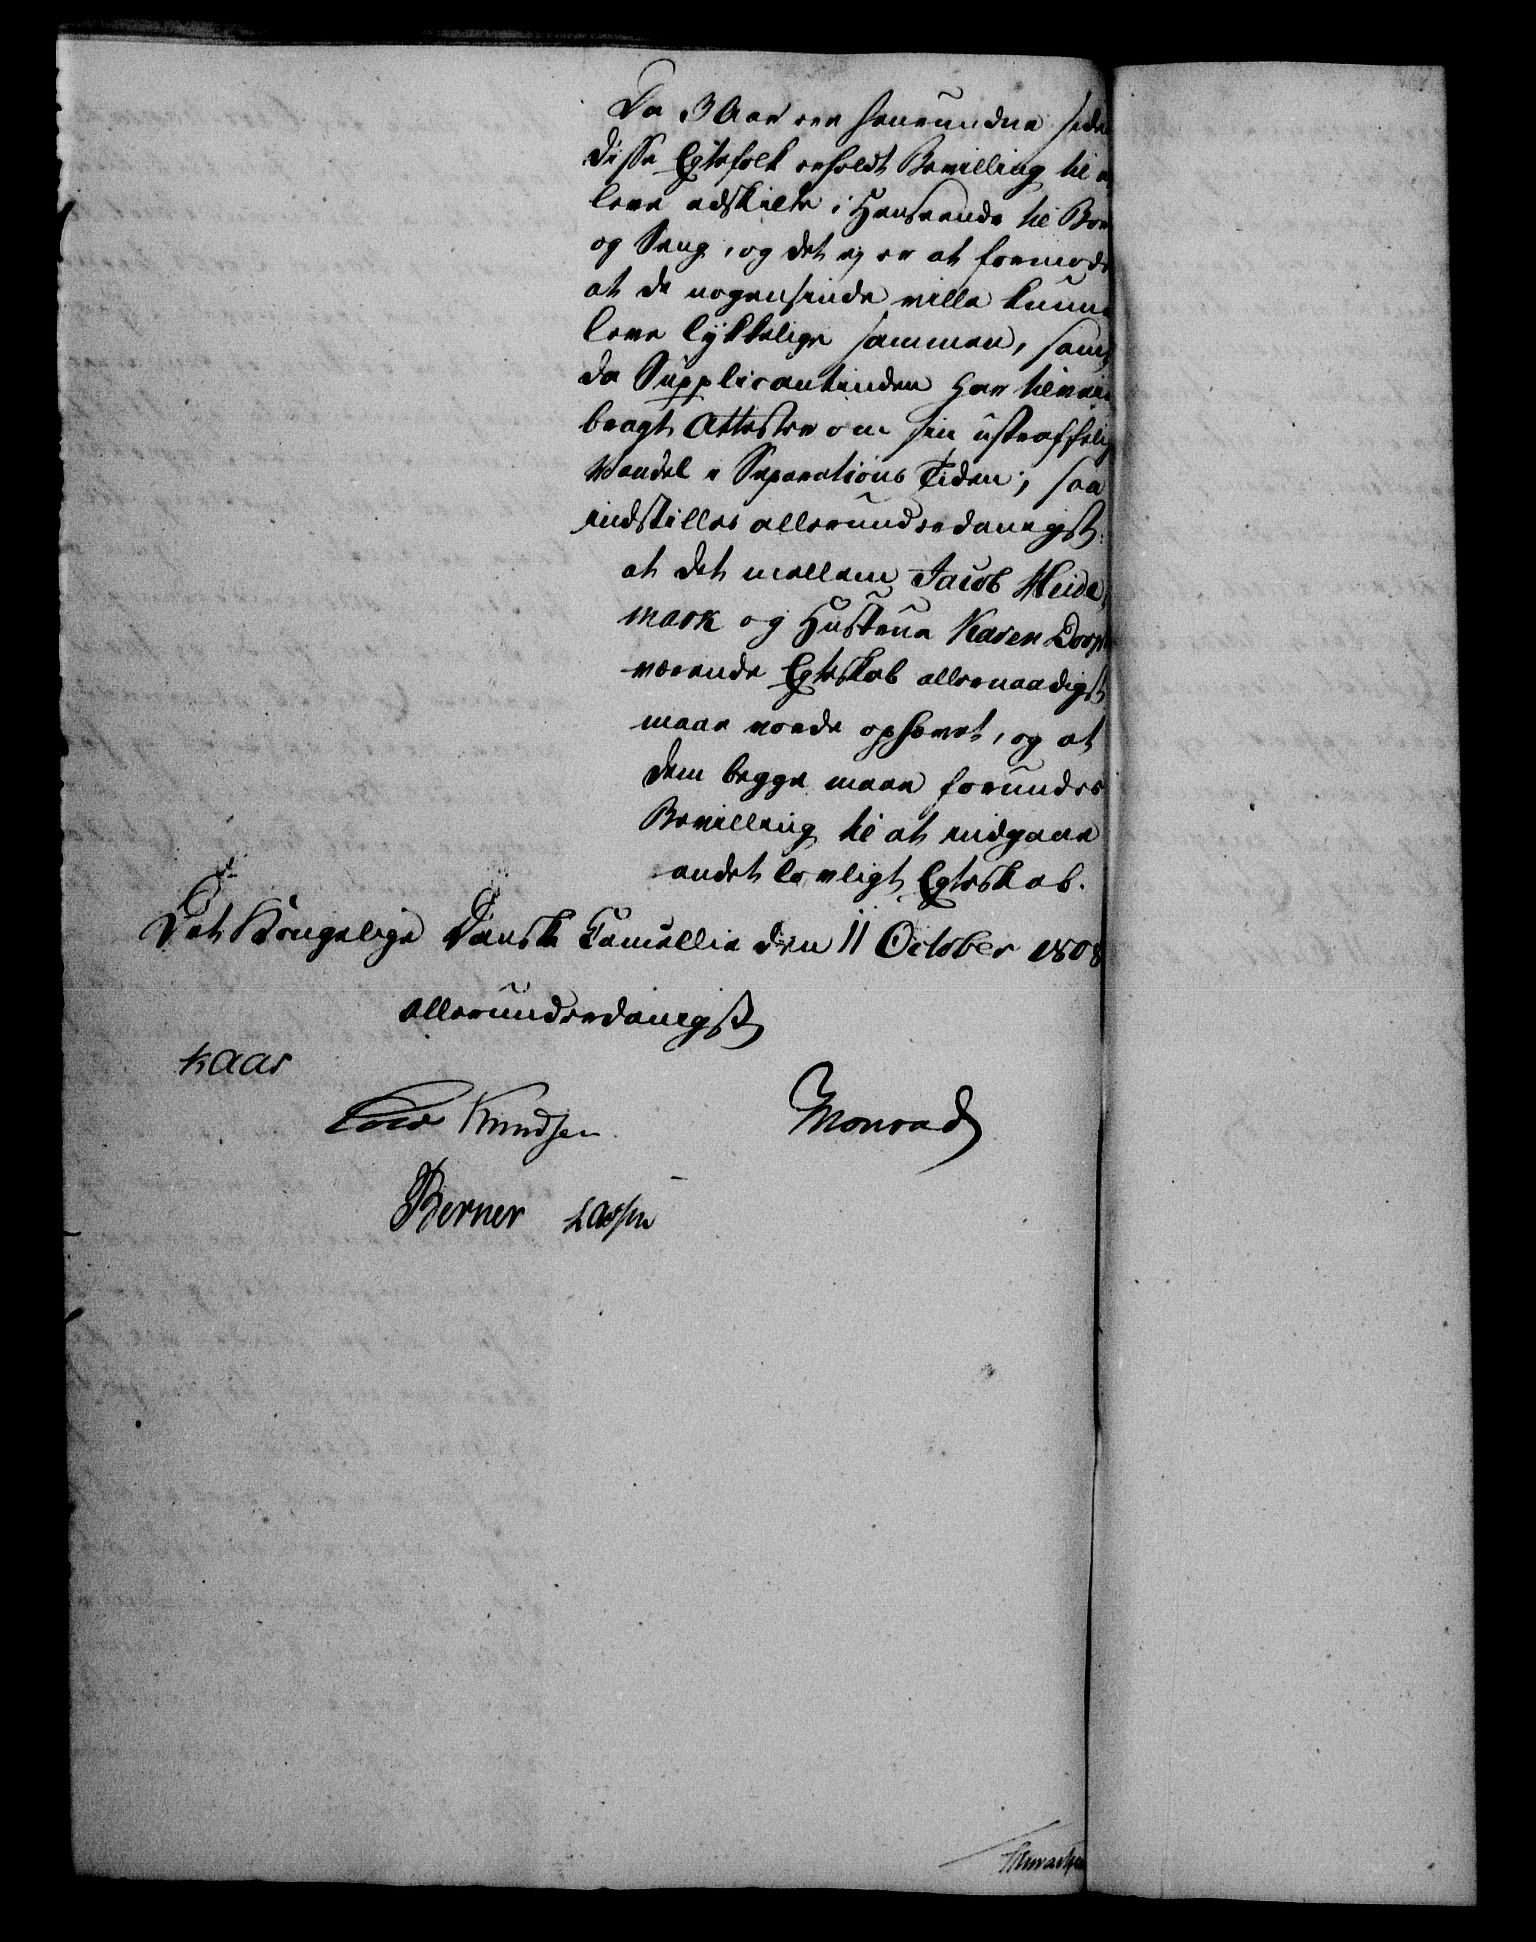 Da 3 Aar ere henrundne siden
disse Egtefolk erholdt Bevilling til
leve adskilte i Henseende til Bord
og Seng, og det ej er at formode
at de nogensinde ville kunne
leve lykkelige sammen, samt
da Supplicantinden har tilveie
bragt Attester om sin ustraffelig
Vandel i Separations Tiden; saa
indstilles allerunderdanigst:
at det mellem Jacob Heide
mark og Hustrue Karen Dorph
værende Egteskab allernaadigst
maae vorde ophævet, og at
dem begge maae forundes
Bevilling til at indgaae
andet lovligt Egteskab.
Det Kongelige Danske Cancellie den 11 October 1808
allerunderdanigst
Kaar
Knudsen Monrad
Berner Lassen